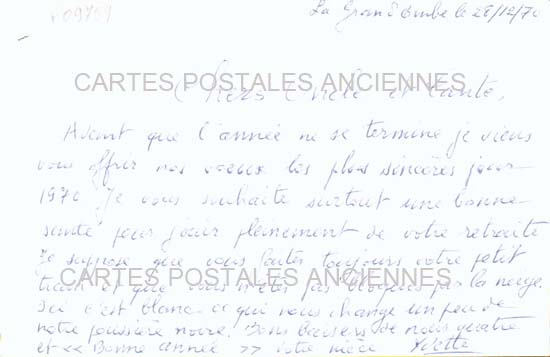 09759
La Grand Combe le 28/12/70
CARTES POSTALES ANCIENNES
Chers Oncle et tante,
Avant que l'année ne se termine je viens
vous offrir nos voeux les plus sincères pour
1970. Je vous souhaite surtout une bonne
santé pour jouir pleinement de votre retraite
Je suppose que vous faites toujours votre petit
train et que vous n'êtes pas bloqués par la neige.
CARTES POSTALES ANCIENNES
Ici c'est blanc ce qui nous change un peu de
notre poussière noire. Bons baisers de nous quatre
et << Bonne année >> votre nièce Yvette